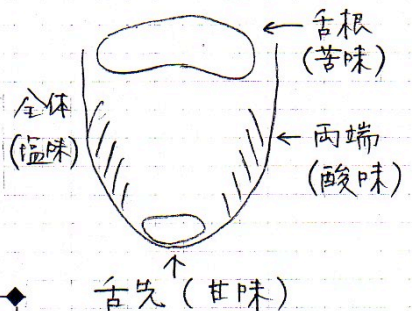 舌根
(苦味)
全体
(塩味)
両端
(酸味)
舌先(甘味)